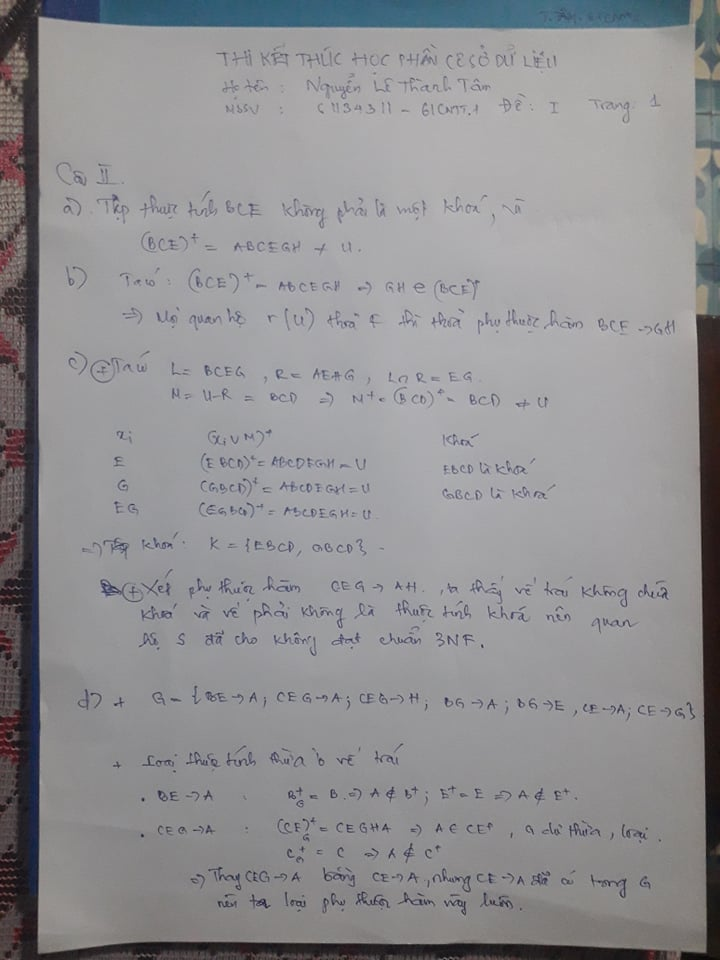 THI KẾT THÚC HỌC PHẦN CƠ SỞ DỮ LIỆU
Họ tên : Nguyễn Lê Thành Tâm
MSSV : 61134311 - 61CNTT.1 Đề : I Trang: 1
Câu II.
a) Tập thuộc tính BCE không phải là một khoá, vì
(BCE)⁺ = ABCEGH ≠ U.
b) Ta có : (BCE)⁺ = ABCEGH => GH ∈ (BCE)⁺
=> Mọi quan hệ r(U) thoả F thì thoả phụ thuộc hàm BCE → GH
c) + Ta có L = BCEG , R = AEHG , L∩R = EG.
M = U-R = BCD => M⁺ = (BCD)⁺ = BCD ≠ U
xi (xi ∪ M)⁺ Khoá
E (EBCD)⁺ = ABCDEGH = U EBCD là khoá
G (GBCD)⁺ = ABCDEGH = U GBCD là khoá
EG (EGBCD)⁺ = ABCDEGH = U.
=> Tập khoá: K = {EBCD, GBCD}.
+ Xét phụ thuộc hàm CEG → AH., ta thấy vế trái không chứa
khoá và vế phải không là thuộc tính khoá nên quan
hệ S đã cho không đạt chuẩn 3NF.
d) + G = {BE → A; CEG → A; CEG → H; BG → A; BG → E, CE → A; CE → G}
+ Loại thuộc tính thừa ở vế trái
. BE → A : B⁺G = B => A ∉ B⁺; E⁺ = E => A ∉ E⁺.
. CEG → A : (CE)⁺G = CEGHA => A ∈ CE⁺, G dư thừa, loại.
C⁺G = C => A ∉ C⁺
=> Thay CEG → A bằng CE → A, nhưng CE → A đã có trong G
nên ta loại phụ thuộc hàm này luôn.